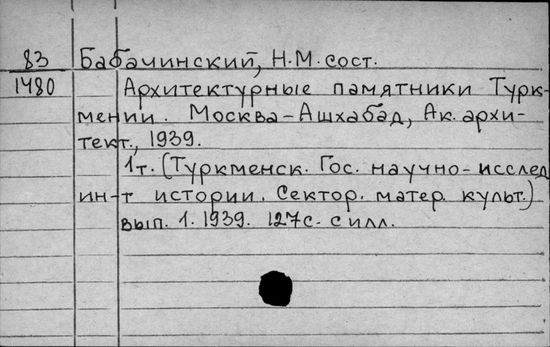 83 Бабачинский, Н.М. сост.
1480 Архитектурные памятники Турк-
мении. Москва-Ашхабад, Ак. архи-
тект., 1939.
1т. (Туркменск. Гос. научно-исслед
ин-т истории. Сектор. матер. культ.)
вып. 1. 1939. 127с. с илл.